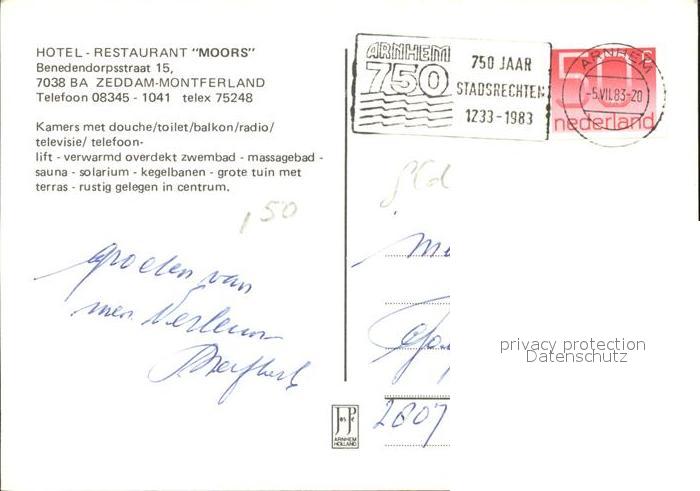 HOTEL - RESTAURANT "MOORS"
Benedendorpsstraat 15,
7038 BA ZEDDAM-MONTFERLAND
Telefoon 08345 - 1041 telex 75248
Kamers met douche/toilet/balkon/radio/
televisie/ telefoon-
lift - verwarmd overdekt zwembad - massagebad -
sauna - solarium - kegelbanen - grote tuin met
terras - rustig gelegen in centrum.
1,50
groeten van
ARNHEM
750
750 JAAR
STADSRECHTEN
1233-1983
ARNHEM
-5.VII.83-20
50c
nederland
privacy protection
Datenschutz
2807
JosPé
ARNHEM
HOLLAND